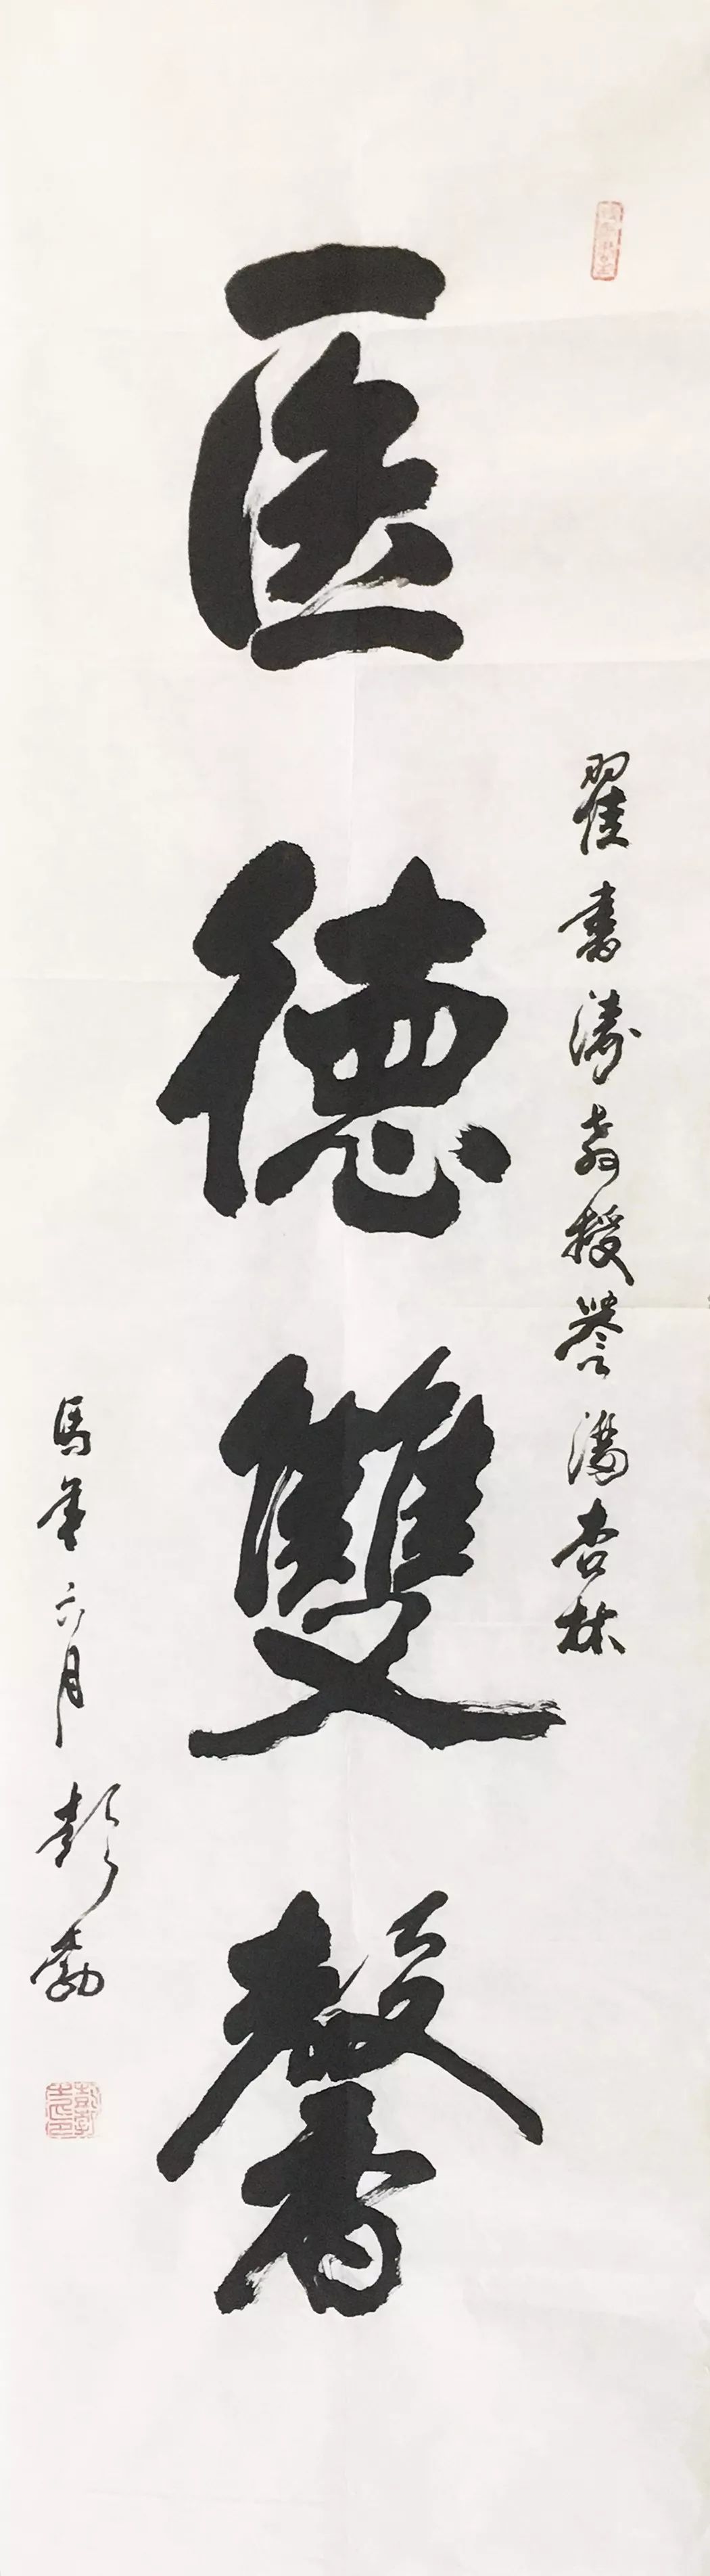 翟書濤教授譽滿杏林
医德雙馨
馬年六月彭勃